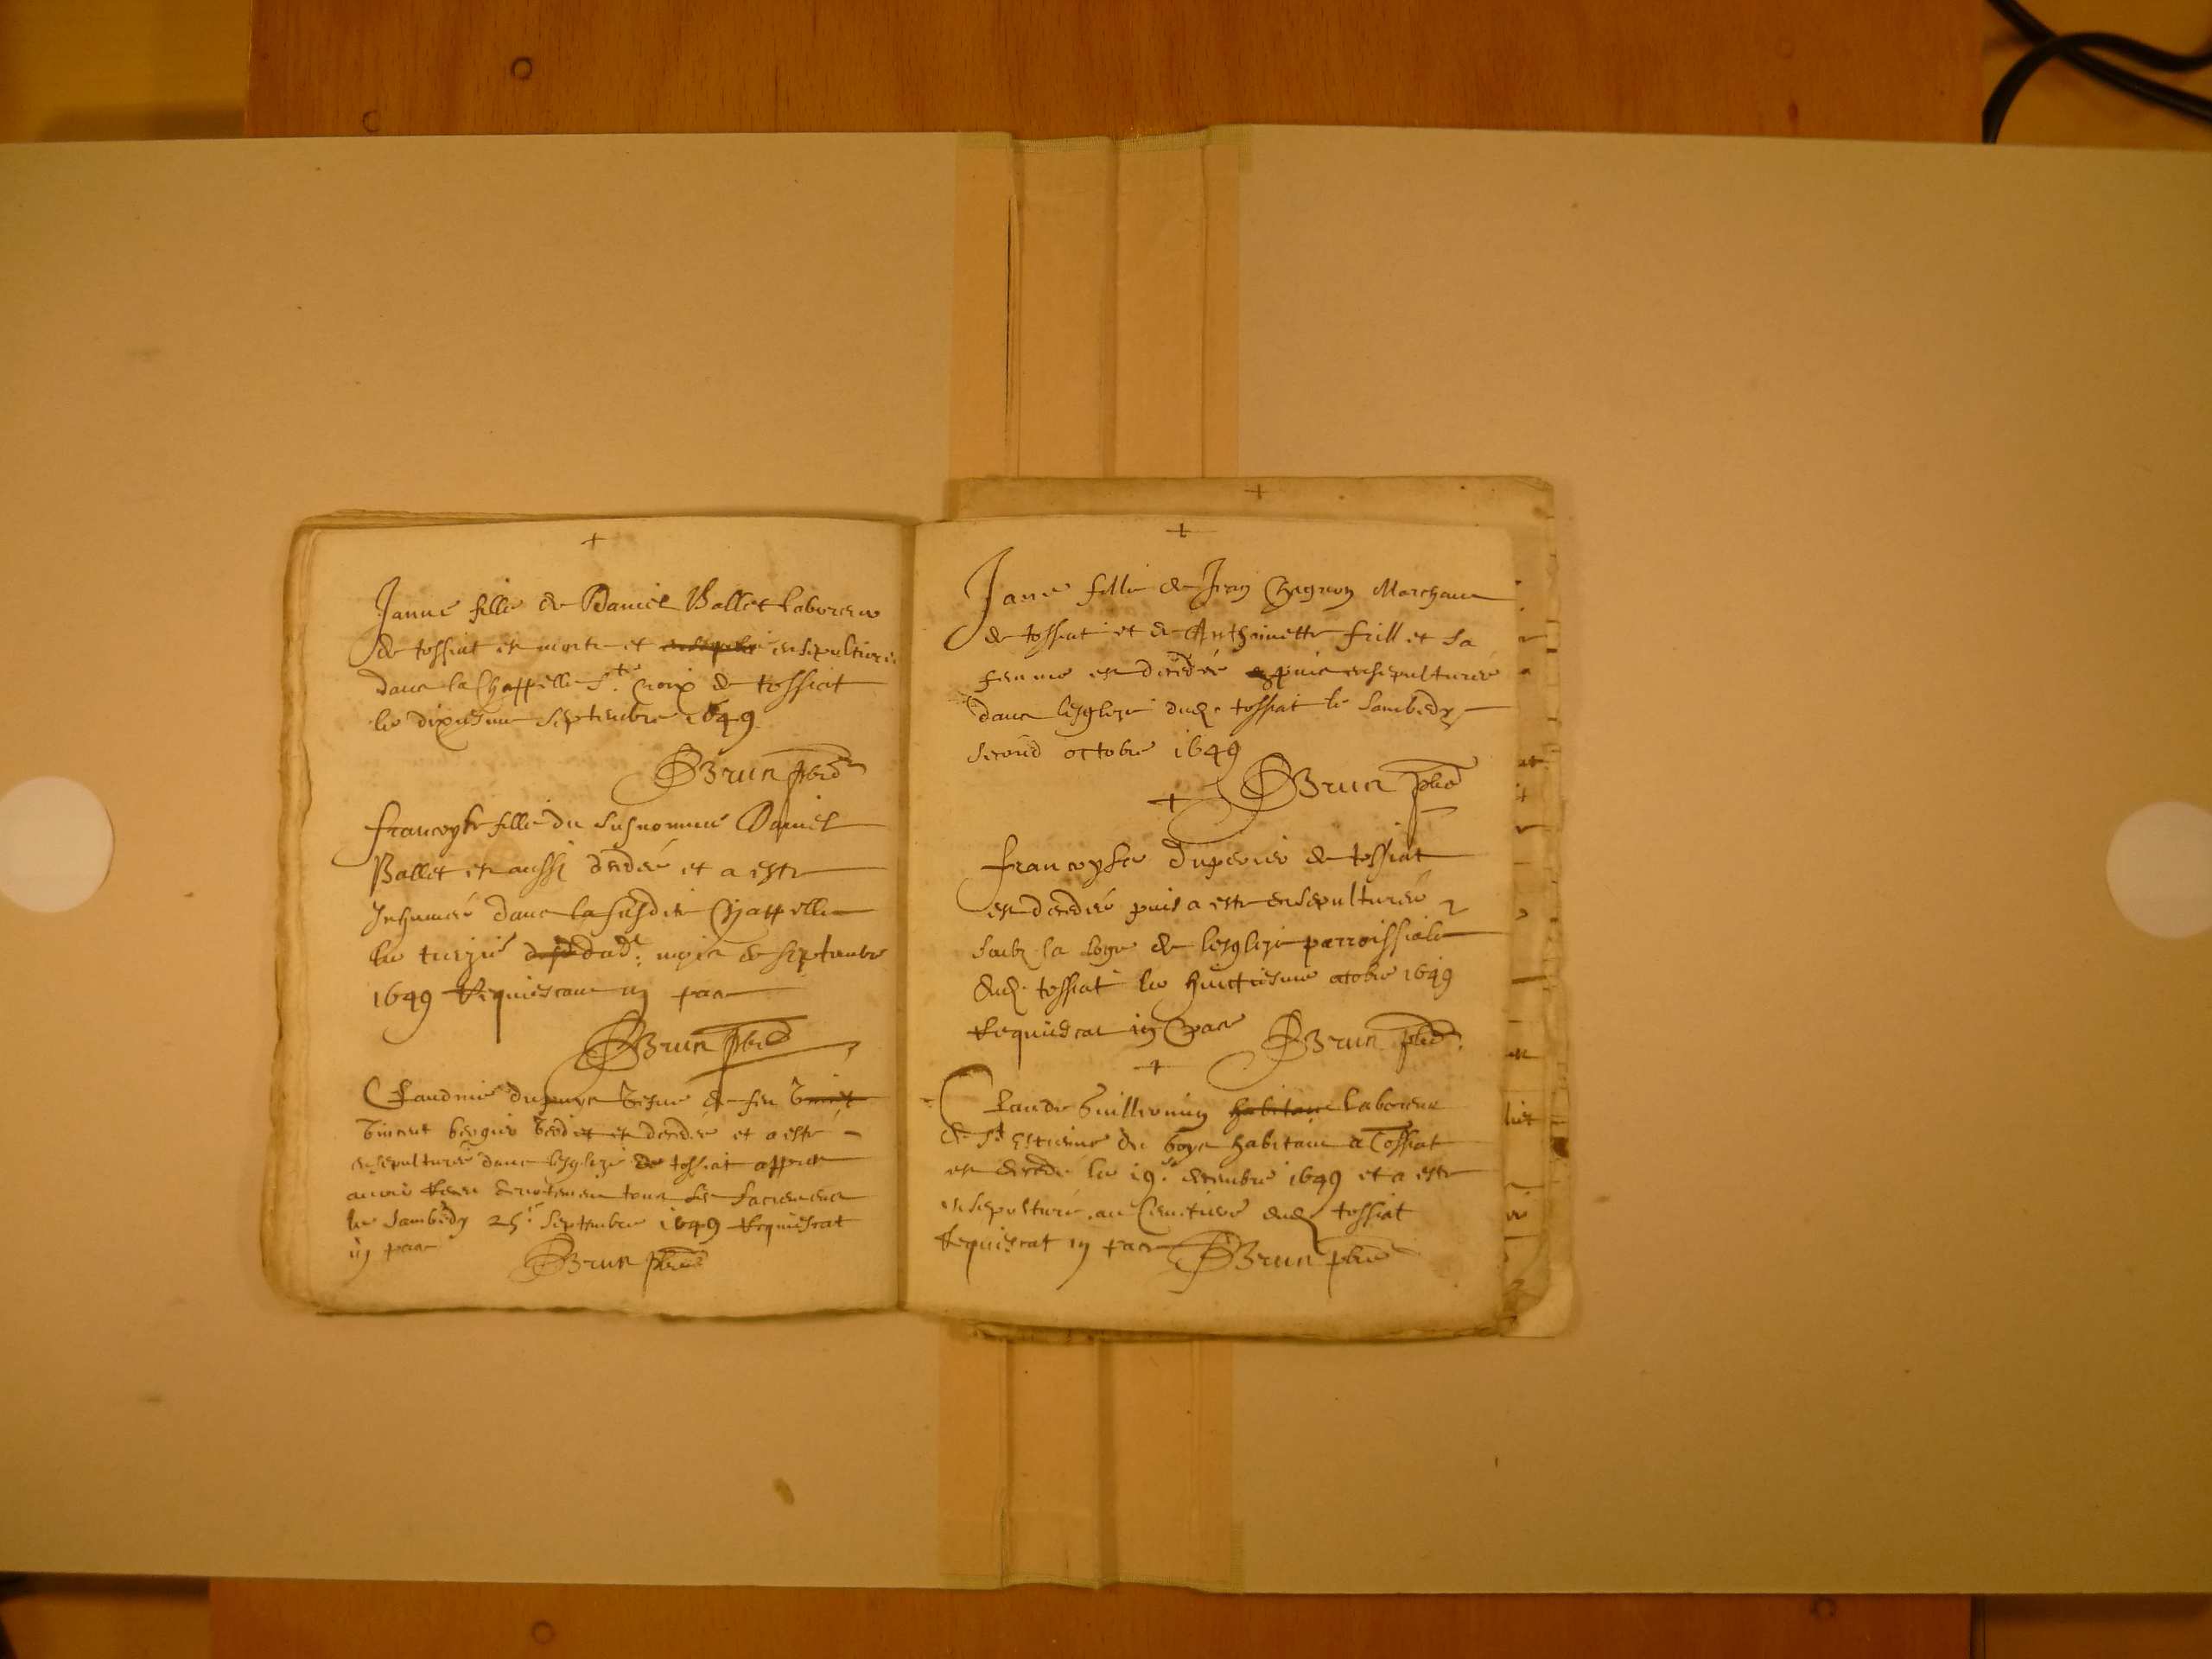 +
Janne fille de Daniel Ballet laboreur
de tossiat est morte et ensepulturee
dans la Chappelle Ste Croix de tossiat
le dixiesme septembre 1649
Brun pbre
francoyse fille du susnomme Daniel
Ballet est aussi decedee et a este
Inhumee dans la susdite Chappelle
le treizie dud: mois de septembre
1649 Requiescant in pace
Brun pbre
Claudine dupuys vesve de feu
Vincent bergier est decedee et a este
ensepulturee dans lesglize de tossiat appres
avoir receu devotement tous les sacremens
le sambedy 25e septembre 1649 Requiescat
in pace Brun pbre
+
Jane fille de Jean Chagnon Marchant
de tossiat et de Anthoinette frill et sa
femme est decedee puis ensepulturee
dans lesglize dud. tossiat le sambedy
second octobre 1649
+ Brun pbre
francoyse Duperier de tossiat
est decedee puis a este ensepulturee
soubz la loge de lesglize parroissiale
dud. tossiat le huictiesme octobre 1649
Requiescat in pace Brun pbre
+
Claude Guillermin habitant laboreur
de St Estienne du boys habitant a Tossiat
est decede le 19e decembre 1649 et a este
ensepulture au Cemitiere dud tossiat
Requiescat in pace Brun pbre